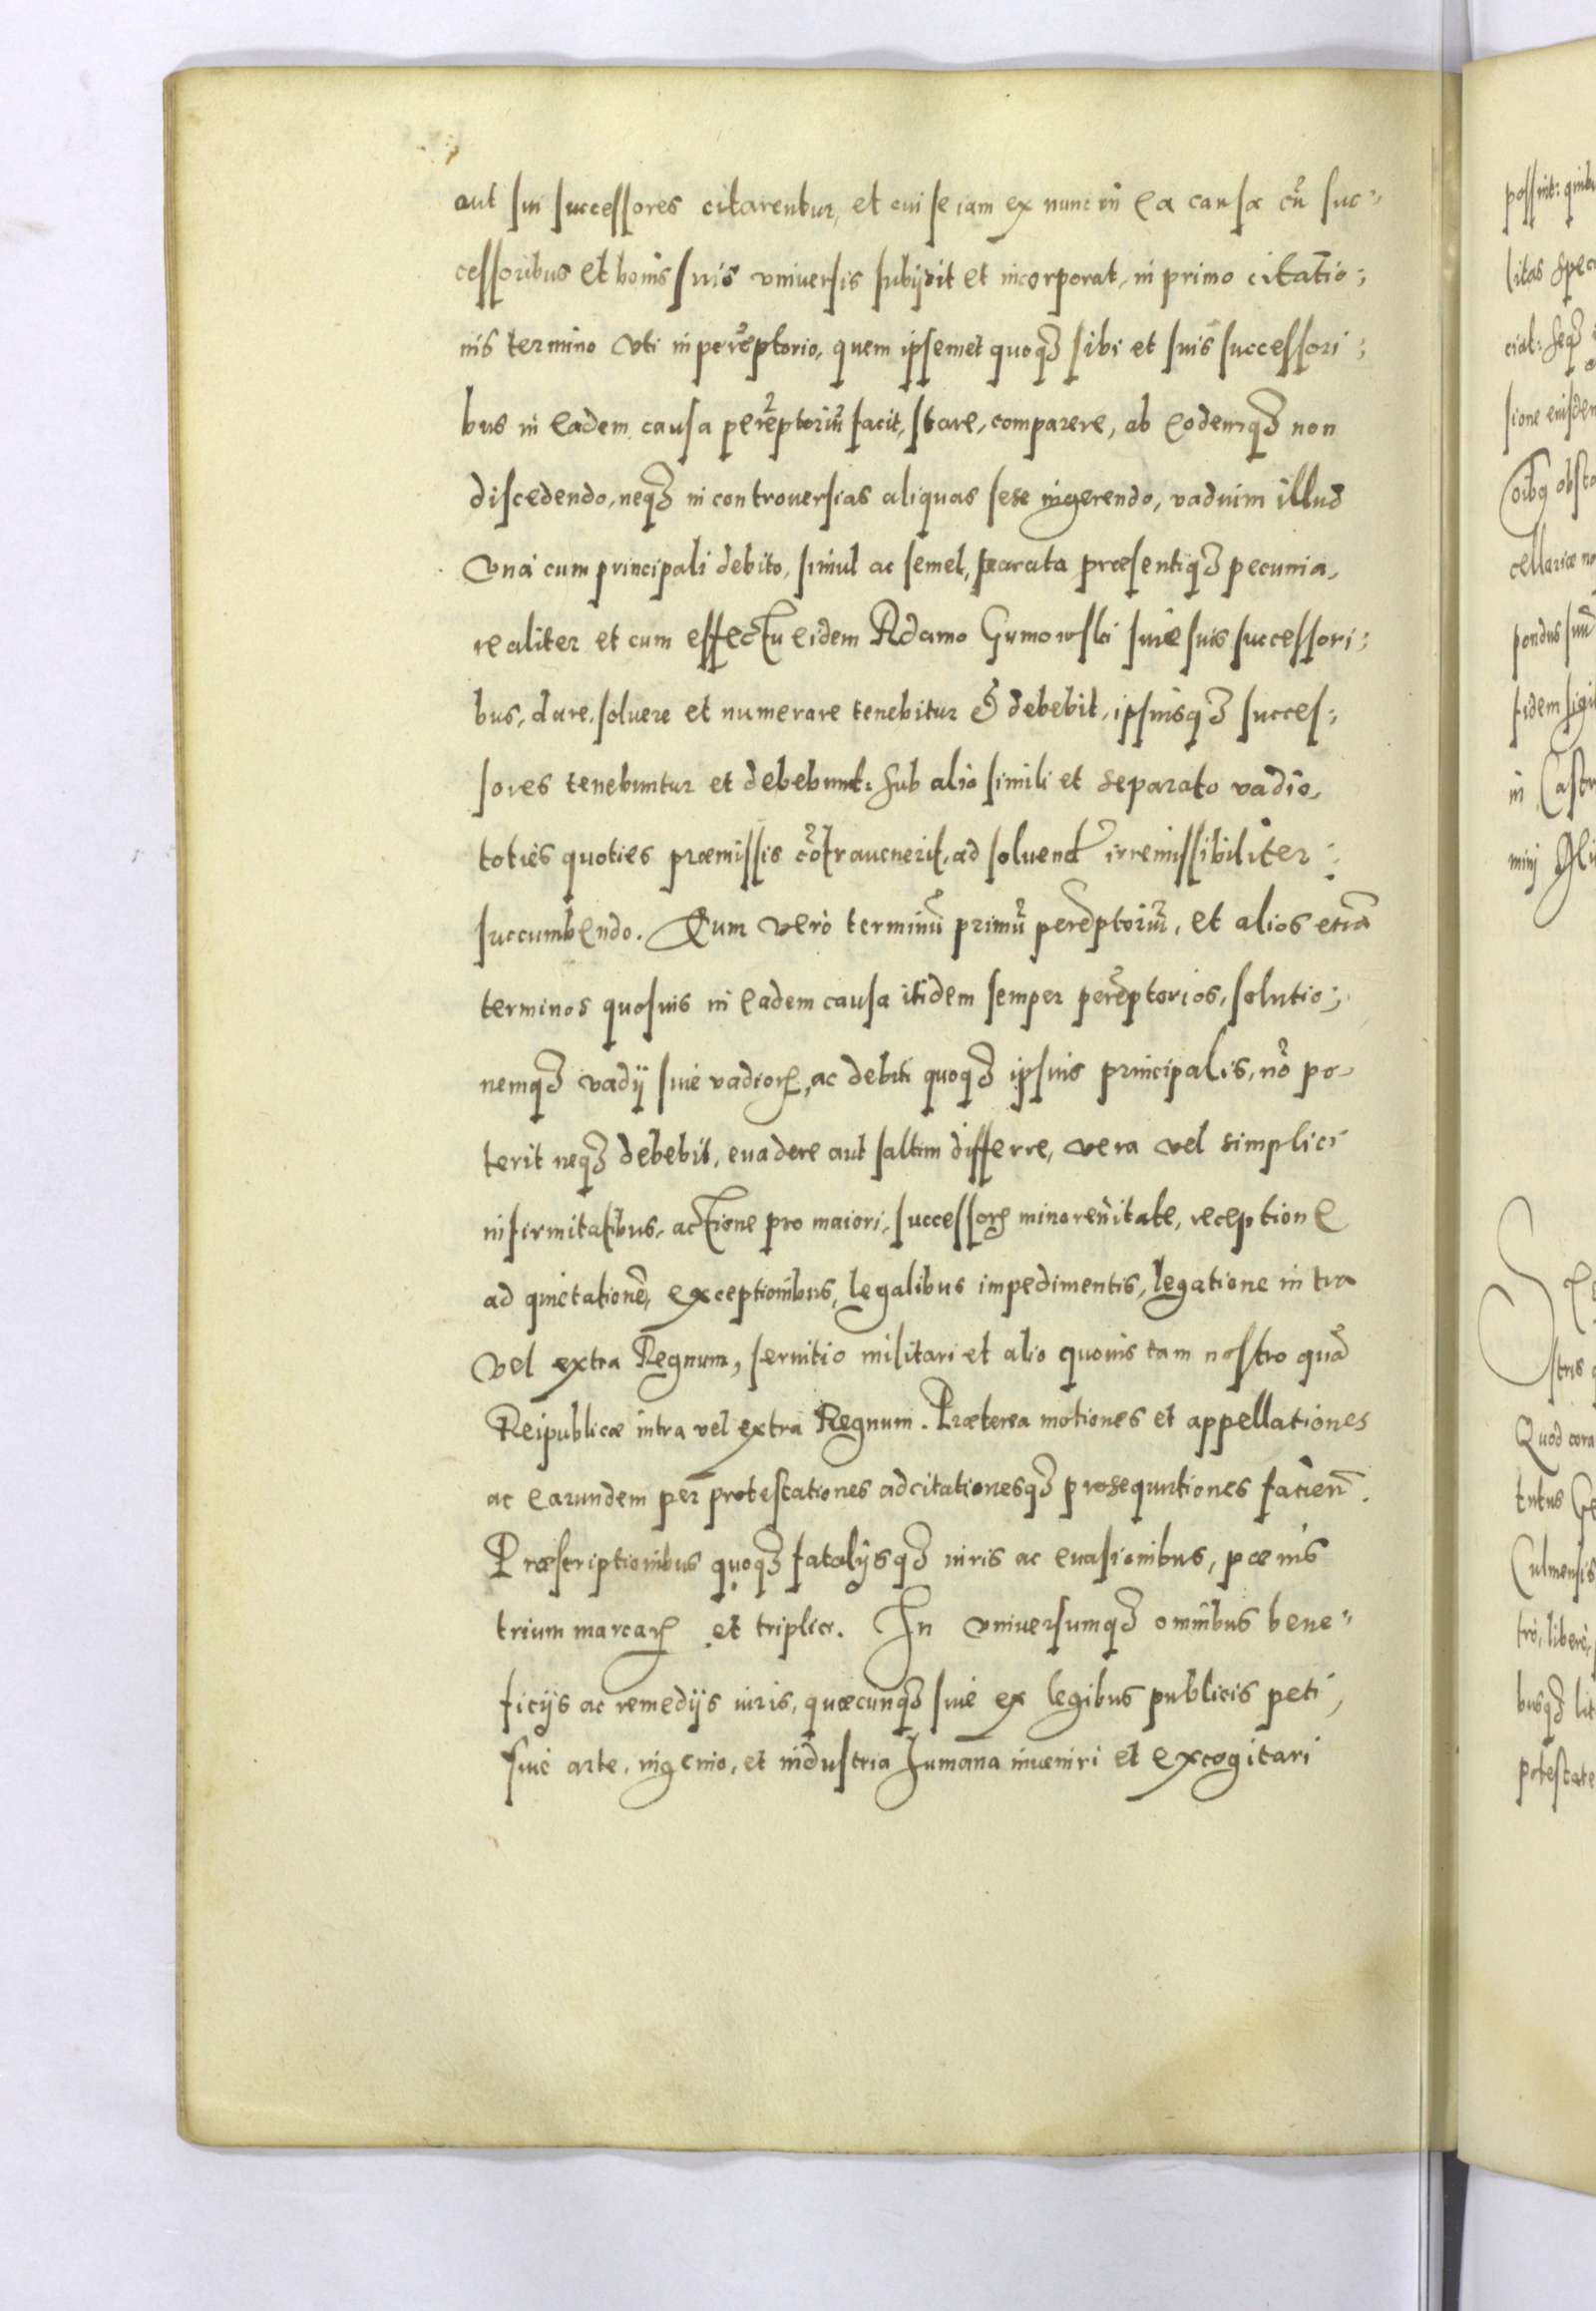 aut sui successores citarentur, et cui se iam ex nunc in ea causa cũ suc=
cessoribus et bonis suis vniuersis subijcit et incorporat, in primo citatio=
nis termino vti in perẽptorio, quem ipsemet quoqȝ sibi et suis successori=
bus in eadem causa perẽptoriũ facit, stare, comparere, ab eodemqȝ non
discedendo, neqȝ in controuersias aliquas sese ingerendo, vadium illud
vnà cum principali debito, simul ac semel, parata præsentiqȝ pecunia,
realiter et cum effectu eidem Adamo Gumowski siue suis successori=
bus, dare, soluere et numerare tenebitur & debebit, ipsiusqȝ succes=
sores tenebuntur et debebunt. Sub alio simili et separato vadio,
toties quoties præmissis cõtrauenerit, ad soluend irremissibiliter
succumbendo. Quem verò terminũ primũ perẽptoriũ, et alios etiã
terminos quosuis in eadem causa itidem semper perẽptorios, solutio=
nemqȝ vadij siue vadioꝝ, ac debiti quoqȝ ipsius principalis, nõ po=
terit neqȝ debebit, euadere aut saltim differre, vera vel simplici
infirmitatibus, actione pro maiori, successoꝝ minorennitate, receptione
ad quietationẽ, exceptionibus, legalibus impedimentis, legatione intra
vel extra Regnum, seruitio militari et alio quouis tam nostro quã
Reipublicæ intra vel extra Regnum. Præterea motiones et appellationes
ac earundem per protestationes adcitationesqȝ prosequutiones facien̄.
Præscriptionibus quoqȝ fatalijsqȝ iuris ac euasionibus, pœnis
trium marcaꝝ et triplici. In vniuersumqȝ omnibus bene=
ficijs ac remedijs iuris, quæcunqȝ siue ex legibus publicis peti,
siue arte, ingenio, et industria humana inueniri et excogitari